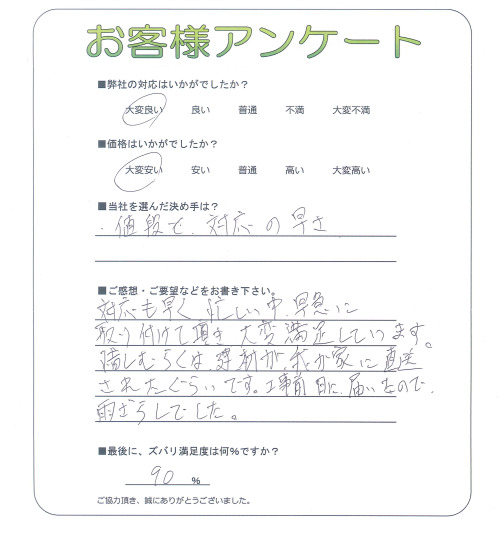 お客様アンケート
■弊社の対応はいかがでしたか？
大変良い 良い 普通 不満 大変不満
■価格はいかがでしたか？
大変安い 安い 普通 高い 大変高い
■当社を選んだ決め手は？
・値段と、対応の早さ
■ご感想・ご要望などをお書き下さい。
対応も早く、忙しい中、早急に
取り付けて頂き、大変満足しています。
惜しむらくは、資材が、我が家に直送
されたぐらいです。工事前日に、届いたので、
雨ざらしでした。
■最後に、ズバリ満足度は何%ですか？
90 %
ご協力頂き、誠にありがとうございました。